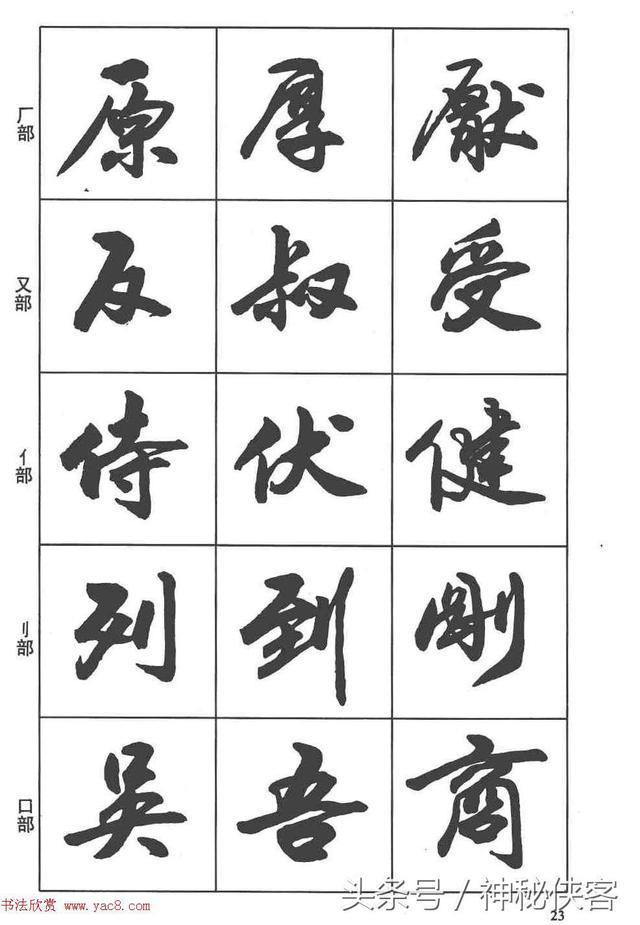 厂部 原 厚 厭
又部 反 叔 受
亻部 侍 伏 健
刂部 列 到 剛
口部 吳 吾 商
头条号／神秘侠客
书法欣赏 www.yac8.com
23